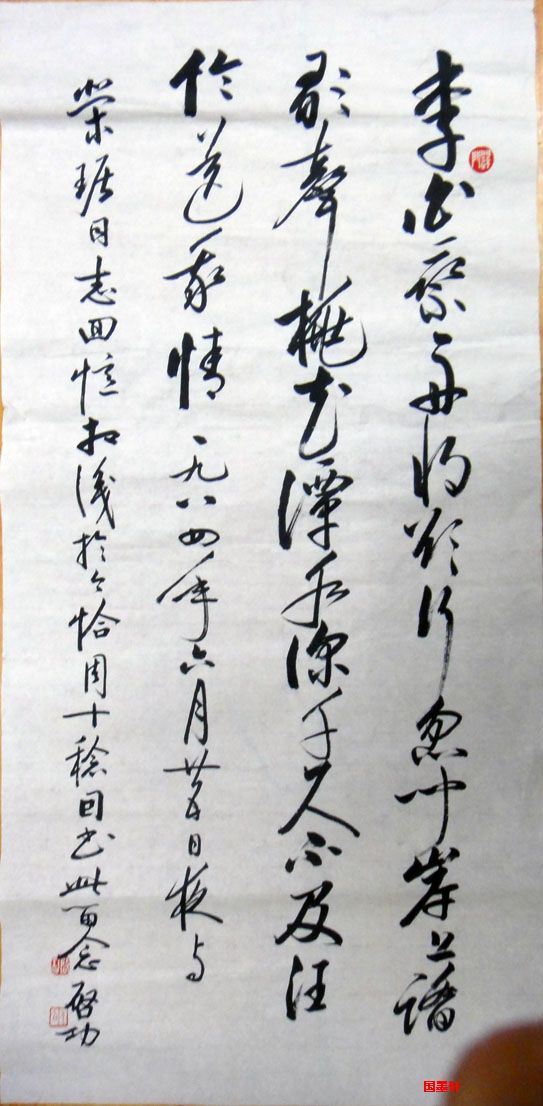 李白乘舟将欲行忽闻岸上踏
歌聲桃花潭水深千尺不及汪
倫送我情一九八四年六月廿五日夜与
荣琚同志回忆相識於今恰周十稔因书此留念启功